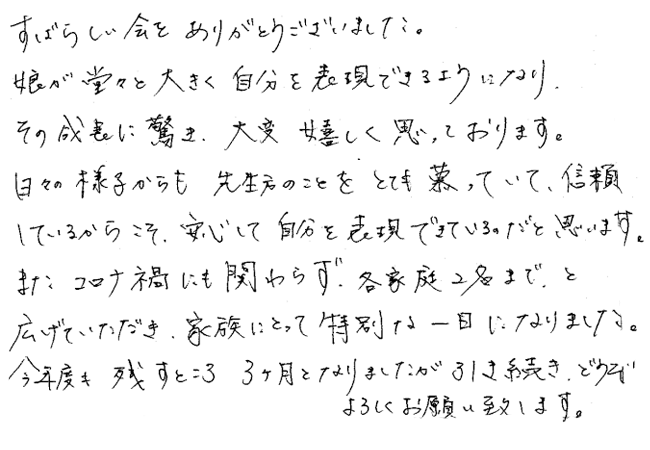 すばらしい会をありがとうございました。
娘が堂々と大きく自分を表現できるようになり、
その成長に驚き、大変嬉しく思っております。
日々の様子からも先生方のことをとても慕っていて、信頼
しているからこそ、安心して自分を表現できているのだと思います。
またコロナ禍にも関わらず、各家庭2名まで、と
広げていただき、家族にとって特別な一日になりました。
今年度も残すところ3ヶ月となりましたが引き続き、どうぞ
よろしくお願い致します。